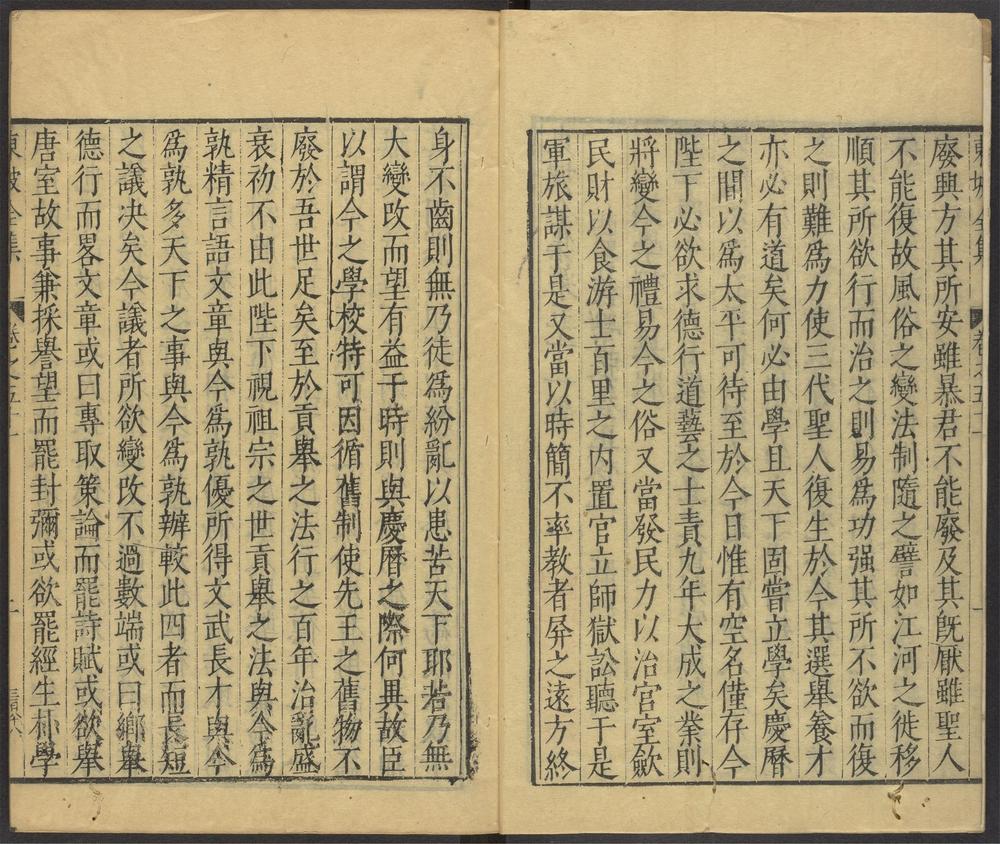 東坡全集 卷之五十一
廢興方其所安雖暴君不能廢及其旣厭雖聖人
不能復故風俗之變法制隨之譬如江河之徙移
順其所欲行而治之則易爲功强其所不欲而復
之則難爲力使三代聖人復生於今其選舉養才
亦必有道矣何必由學且天下固嘗立學矣慶曆
之間以爲太平可待至於今日惟有空名僅存今
陛下必欲求德行道藝之士責九年大成之業則
將變今之禮易今之俗又當發民力以治宮室歛
民財以食游士百里之内置官立師獄訟聽于是
軍旅謀于是又當以時簡不率教者屏之遠方終
身不齒則無乃徒爲紛亂以患苦天下耶若乃無
大變改而望有益于時則與慶曆之際何異故臣
以謂今之學校特可因循舊制使先王之舊物不
廢於吾世足矣至於貢舉之法行之百年治亂盛
衰初不由此陛下視祖宗之世貢舉之法與今爲
孰精言語文章與今爲孰優所得文武長才與今
爲孰多天下之事與今爲孰辦較此四者而長短
之議决矣今議者所欲變改不過數端或曰鄉舉
德行而畧文章或曰專取策論而罷詩賦或欲舉
唐室故事兼採譽望而罷封彌或欲罷經生朴學
東坡全集 卷之五十一